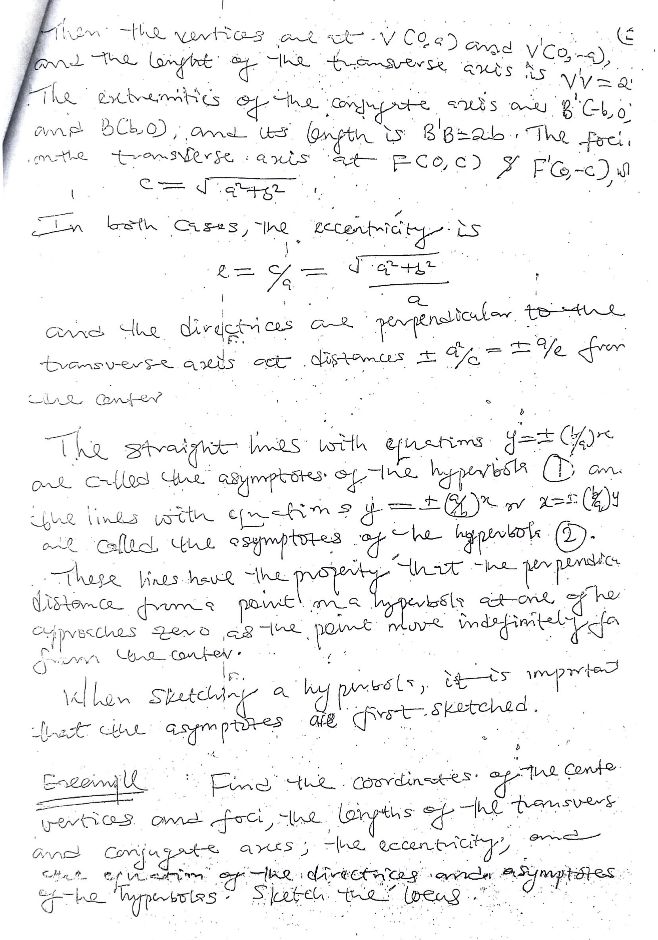 Then the vertices are at V(0,a) and V'(0,-a),
and the lenght of the transverse axis is V'V=2
The extremities of the conjugate axis are B'(-b,0
and B(b,0), and its length is B'B=2b. The foci
on the transverse axis at F(0,c) & F'(0,-c),
c = √a²+b²
In both cases, the eccentricity is
e = c/a = √a²+b² / a
and the directrices are perpendicular to the
transverse axis at distances ± a²/c = ± a/e from
the center
The straight lines with equations y=±(b/a)x
are called the asymptotes of the hyperbola ① an
the lines with equations y = ±(a/b)x or x=±(b/a)y
are called the asymptotes of the hyperbola ②.
These lines have the property that the perpendicu
distance from a point on a hyperbola at one of he
approaches zero as the point move indefinitely fa
from the center.
When sketching a hyperbola, it is important
that the asymptotes are first sketched.
Example : Find the coordinates of the cente
vertices and foci, the lengths of the transvers
and conjugate axes; the eccentricity; and
the equation of the directrices and asymptotes
of the hyperbolas. Sketch the locus.